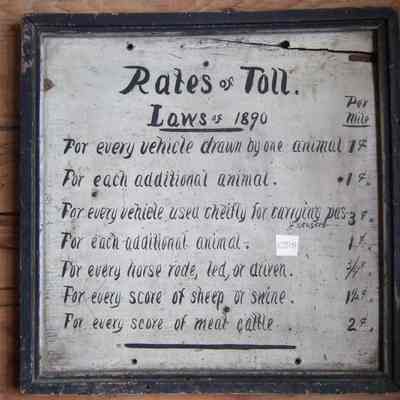 Rates of Toll.
Laws of 1890
Per
Mile
For every vehicle drawn by one animal 1¢
For each additional animal. 1¢.
For every vehicle used cheifly for carrying pas- 3¢.
sengers
For each additional animal. 1¢.
For every horse rode, led, or driven. ¢.
For every score of sheep or swine. ¢.
For every score of meat cattle. 2¢.